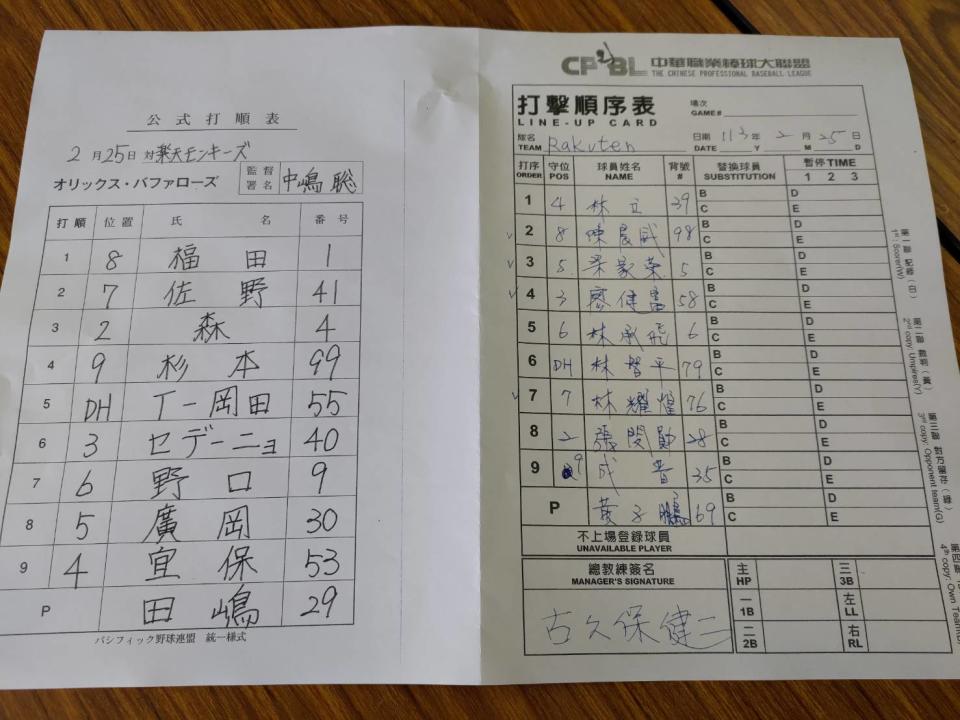 公式打順表
2月25日 対楽天モンキーズ
オリックス・バファローズ 監督署名 中嶋 聡
打順 位置 氏名 番号
1 8 福田 1
2 7 佐野 41
3 2 森 4
4 9 杉本 99
5 DH T-岡田 55
6 3 セデーニョ 40
7 6 野口 9
8 5 廣岡 30
9 4 宜保 53
P 田嶋 29
パシフィック野球連盟 統一様式
CPBL 中華職業棒球大聯盟
THE CHINESE PROFESSIONAL BASEBALL LEAGUE
打擊順序表 場次
LINE-UP CARD GAME#
隊名 Rakuten 日期 113年 2月 25日
TEAM DATE Y M D
打序 守位 球員姓名 背號 替換球員 暫停 TIME
ORDER POS NAME # SUBSTITUTION 1 2 3
1 4 林立 39 B D
C E
2 8 陳晨威 98 B D
C E
3 5 梁家榮 5 B D
C E
4 3 廖健富 58 B D
C E
5 6 林承飛 6 B D
C E
6 DH 林智平 79 B D
C E
7 7 林耀煌 76 B D
C E
8 2 張閔勛 28 B D
C E
9 9 成晉 35 B D
C E
P 黃子鵬 69 B D
C E
不上場登錄球員
UNAVAILABLE PLAYER
總教練簽名 主 HP 三 3B
MANAGER'S SIGNATURE 一 1B 左 LL
古久保健二 二 2B 右 RL
第一聯 記錄(白)
1st: Scorer(W)
第二聯 裁判(黃)
2nd copy: Umpires(Y)
第三聯 對方留存(綠)
3rd copy: Opponent team(G)
第四聯
4th copy: Own Team